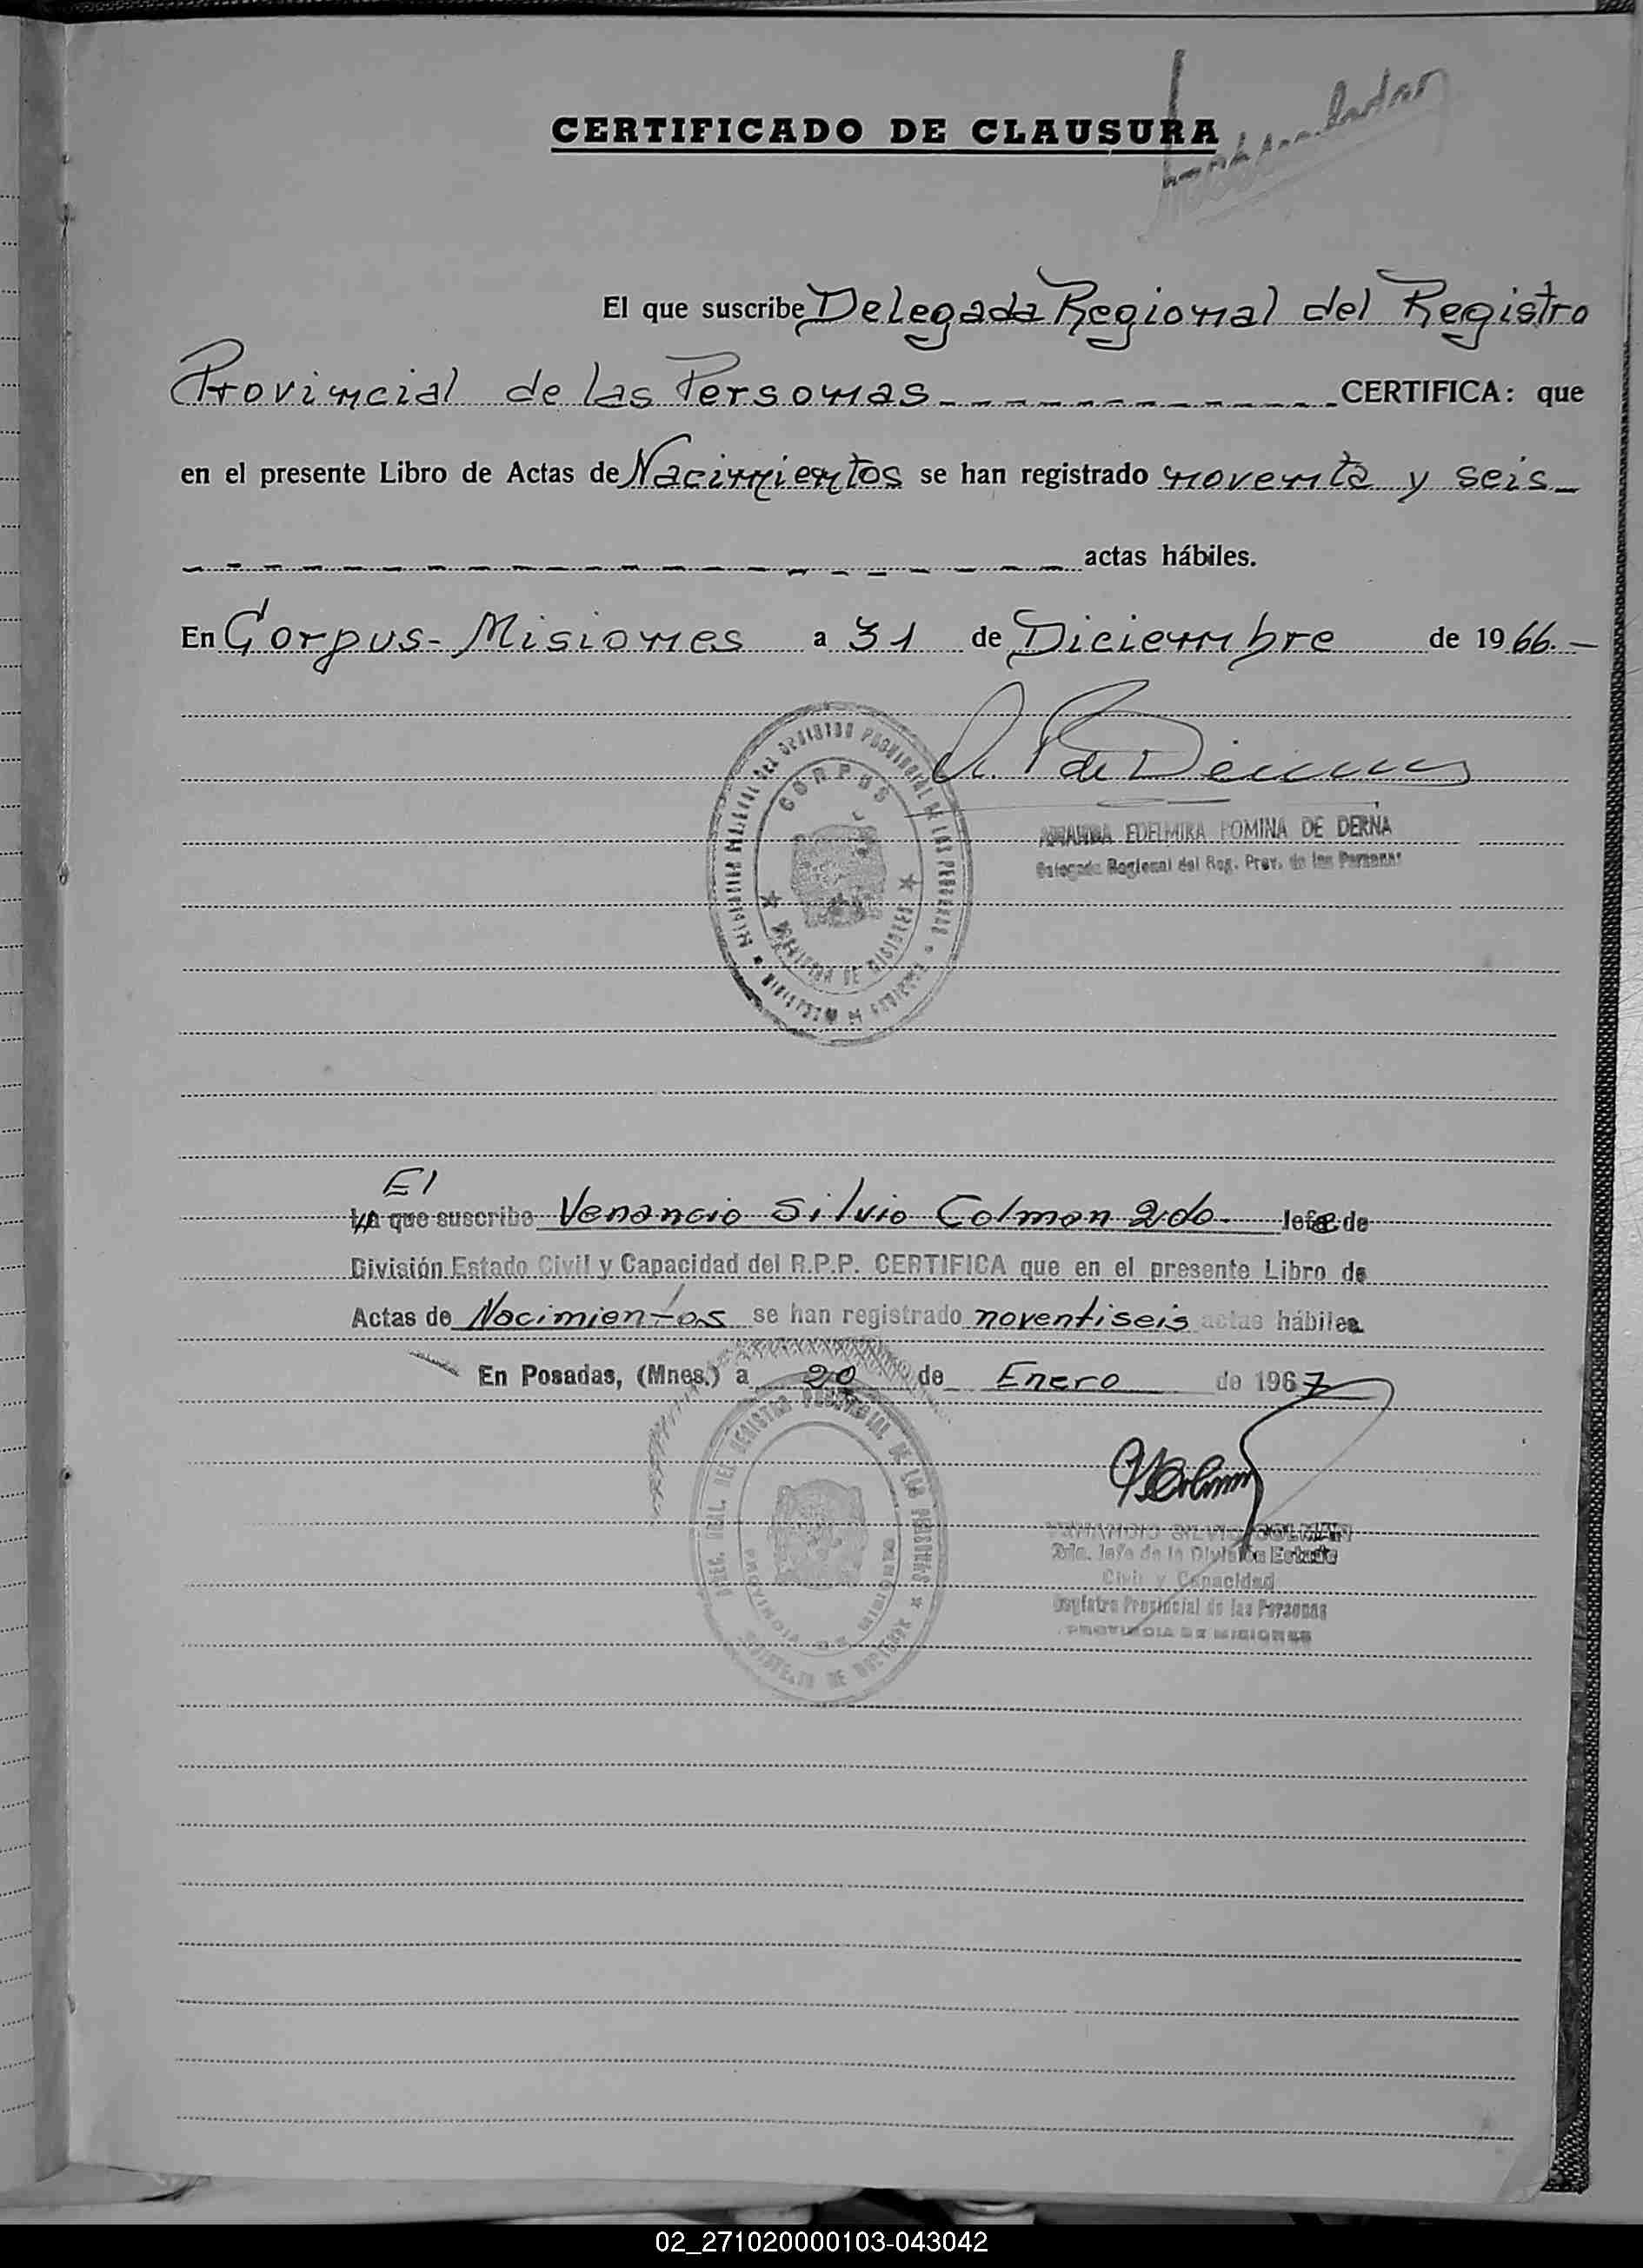 CERTIFICADO DE CLAUSURA
El que suscribe Delegada Regional del Registro
Provincial de las Personas - - - - - - - - - - - - - CERTIFICA: que
en el presente Libro de Actas de Nacimientos se han registrado noventa y seis -
- - - - - - - - - - - - - - - - - - - - actas hábiles.
En Corpus - Misiones a 31 de Diciembre de 1966. -
REGISTRO PROVINCIAL DE LAS PERSONAS
CORPUS
PROVINCIA DE MISIONES
EDELMIRA ROMINA DE DERNA
Delegada Regional del Reg. Prov. de las Personas
El
La que suscribe Venancio Silvio Colman 2do. Jefe de
División Estado Civil y Capacidad del R.P.P. CERTIFICA que en el presente Libro de
Actas de Nacimientos se han registrado noventiseis actas hábiles
En Posadas, (Mnes.) a 20 de Enero de 1967
DIREC. GRAL. DEL REGISTRO PROVINCIAL DE LAS PERSONAS
PROVINCIA DE MISIONES
VENANCIO SILVIO COLMAN
2do. Jefe de la División Estado
Civil y Capacidad
Registro Provincial de las Personas
PROVINCIA DE MISIONES
02_271020000103-043042